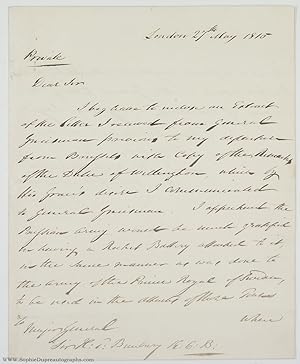 London 27th May 1815
Private
Dear Sir
I beg leave to inclose an Extract
of the letter I received from General
Gneisenau previous to my departure
from Brussels with Copy of the Remarks
of the Duke of Wellington which by
His Grace's desire I communicated
to General Gneisenau. I apprehend the
Prussian Army would be much gratified
in having a Rocket Battery attached to it
in the same manner as was done to
the Army of the Prince Royal of Sweden,
to be used in the attack of those
Where
To
Major General
Sir H. E. Bunbury K C B
www.SophieDupreautographs.com